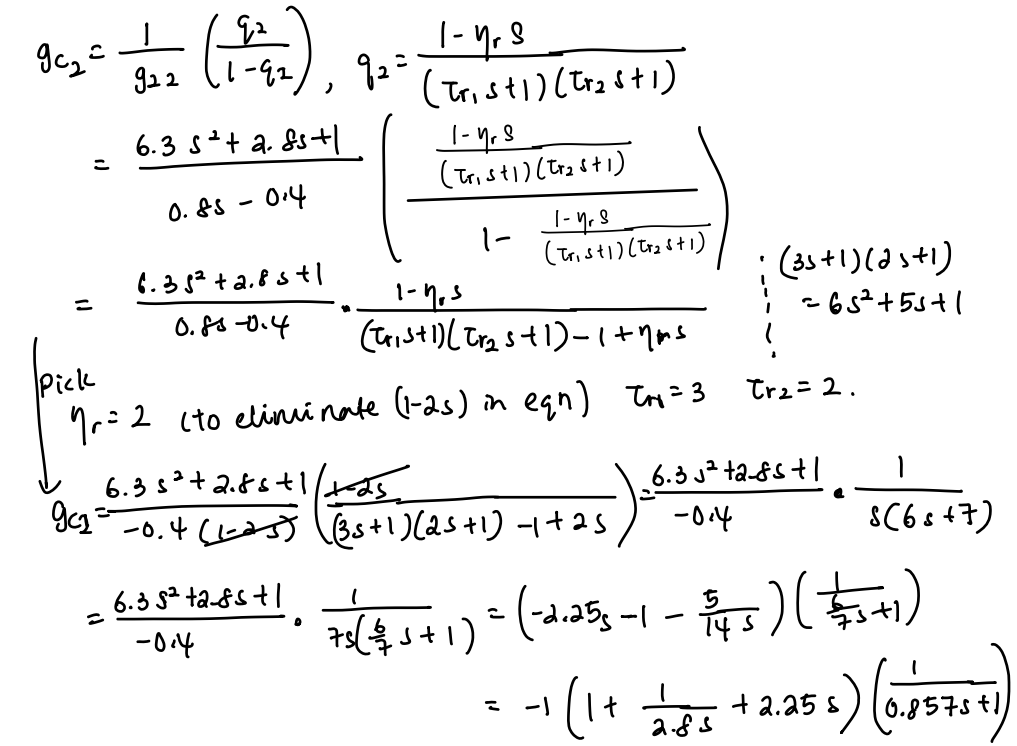 g_{c_2} = \frac{1}{g_{22}} \left( \frac{q_2}{1-q_2} \right), q_2 = \frac{1-η_r s}{(τ_{r_1} s+1)(τ_{r_2} s+1)}
= \frac{6.3 s^2 + 2.8s+1}{0.8s - 0.4} \left( \frac{\frac{1-η_r s}{(τ_{r_1} s+1)(τ_{r_2} s+1)}}{1 - \frac{1-η_r s}{(τ_{r_1} s+1)(τ_{r_2} s+1)}} \right)
= \frac{6.3 s^2 + 2.8 s+1}{0.8s - 0.4} · \frac{1-η_r s}{(τ_{r_1} s+1)(τ_{r_2} s+1) - 1 + η_r s}
(3s+1)(2s+1)
= 6s^2 + 5s + 1
pick
η_r = 2 (to eliminate (1-2s) in eqn) τ_{r_1} = 3 τ_{r_2} = 2.
g_{c_2} = \frac{6.3 s^2 + 2.8s+1}{-0.4 (1-2s)} \left( \frac{1-2s}{(3s+1)(2s+1) - 1 + 2s} \right) = \frac{6.3 s^2 + 2.8s+1}{-0.4} · \frac{1}{s(6s+7)}
= \frac{6.3 s^2 + 2.8s+1}{-0.4} · \frac{1}{7s(\frac{6}{7} s+1)} = \left( -2.25s - 1 - \frac{5}{14 s} \right) \left( \frac{1}{\frac{6}{7}s+1} \right)
= -1 \left( 1 + \frac{1}{2.8s} + 2.25 s \right) \left( \frac{1}{0.857s+1} \right)